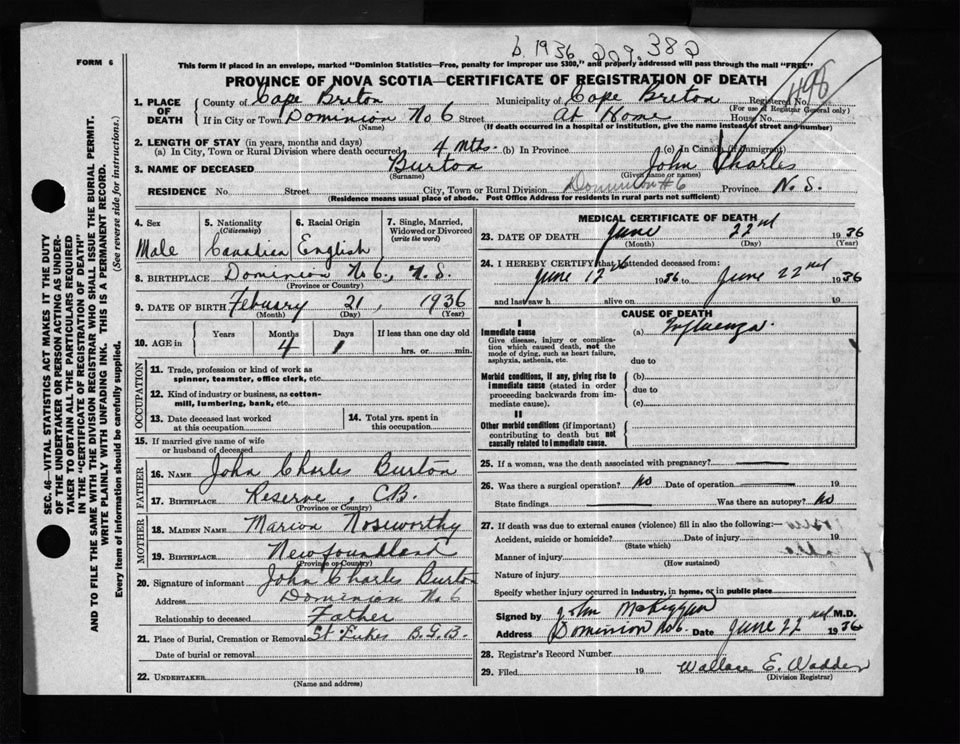 b 1936 209.382
FORM 6
This form if placed in an envelope, marked "Dominion Statistics—Free, penalty for improper use $300," and properly addressed will pass through the mail "FREE"
PROVINCE OF NOVA SCOTIA—CERTIFICATE OF REGISTRATION OF DEATH
496
1. PLACE OF DEATH County of Cape Breton Municipality of Cape Breton Registered No.
(For use of Registrar General only)
If in City or Town Dominion No 6 Street At Home House No.
(Name) (If death occurred in a hospital or institution, give the name instead of street and number)
2. LENGTH OF STAY (in years, months and days)
(a) In City, Town or Rural Division where death occurred 4 mths. (b) In Province (c) In Canada (if immigrant)
3. NAME OF DECEASED Burton John Charles
(Surname) (Given name or names)
RESIDENCE No. Street City, Town or Rural Division Dominion #6 Province N.S.
(Residence means usual place of abode. Post Office Address for residents in rural parts not sufficient)
SEC. 46—VITAL STATISTICS ACT MAKES IT THE DUTY
OF THE UNDERTAKER OR PERSON ACTING AS UNDER-
TAKER TO OBTAIN ALL THE PARTICULARS REQUIRED
IN THE "CERTIFICATE OF REGISTRATION OF DEATH"
AND TO FILE THE SAME WITH THE DIVISION REGISTRAR WHO SHALL ISSUE THE BURIAL PERMIT.
WRITE PLAINLY WITH UNFADING INK. THIS IS A PERMANENT RECORD.
Every item of information should be carefully supplied. (See reverse side for instructions.)
4. Sex 5. Nationality (Citizenship) 6. Racial Origin 7. Single, Married, Widowed or Divorced (write the word)
Male Canadian English
8. BIRTHPLACE Dominion No 6., N.S.
(Province or Country)
9. DATE OF BIRTH Febuary 21, 1936
(Month) (Day) (Year)
10. AGE in Years Months Days If less than one day old
4 1 hrs. or min.
OCCUPATION
11. Trade, profession or kind of work as
spinner, teamster, office clerk, etc.
12. Kind of industry or business, as cotton-
mill, lumbering, bank, etc.
13. Date deceased last worked at this occupation
14. Total yrs. spent in this occupation
15. If married give name of wife
or husband of deceased
FATHER
16. NAME John Charles Burton
17. BIRTHPLACE Reserve, C.B.
(Province or Country)
MOTHER
18. MAIDEN NAME Marion Noseworthy
19. BIRTHPLACE Newfoundland
(Province or Country)
20. Signature of informant John Charles Burton
Address Dominion No 6
Relationship to deceased Father
21. Place of Burial, Cremation or Removal St B.G.B.
Date of burial or removal
22. UNDERTAKER
(Name and address)
MEDICAL CERTIFICATE OF DEATH
23. DATE OF DEATH June 22nd 1936
(Month) (Day) (Year)
24. I HEREBY CERTIFY that I attended deceased from:
June 12th 1936 to June 22nd 1936
and last saw h alive on 19
CAUSE OF DEATH
I
Immediate cause (a) Influenza.
Give disease, injury or complica-
tion which caused death, not the
mode of dying, such as heart failure,
asphyxia, asthenia, etc.
due to
Morbid conditions, if any, giving rise to (b)
immediate cause (stated in order due to
proceeding backwards from im-
mediate cause). (c)
II
Other morbid conditions (if important)
contributing to death but not
causally related to immediate cause.
25. If a woman, was the death associated with pregnancy?
26. Was there a surgical operation? No Date of operation 19
State findings Was there an autopsy? No
27. If death was due to external causes (violence) fill in also the following:—
Accident, suicide or homicide? Date of injury 19
(State which)
Manner of injury
(How sustained)
Nature of injury
Specify whether injury occurred in industry, in home, or in public place
Signed by John McKiggan M.D.
Address Dominion No 6. Date June 22nd 1936
28. Registrar's Record Number
29. Filed 19 Wallace E. Wadden
(Division Registrar)